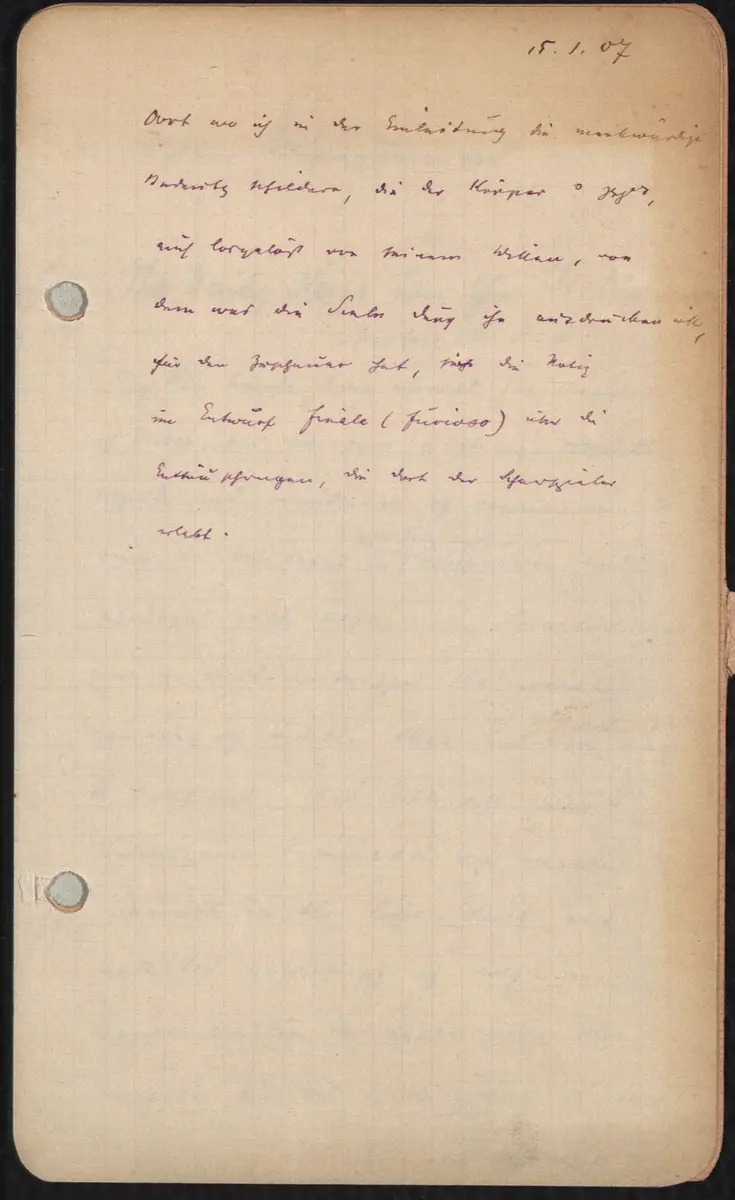 15. 1. 07
Dort wo ich in der Einleitung die merkwürdige
schildere, die der Körper
auch losgelöst von seinem Willen, von
dem was die Seele durch ihn ausdrücken will,
für den Zuschauer hat, die Notiz
im Entwurf Finale (furioso) über die
Enttäuschungen, die dort der Schauspieler
erlebt.